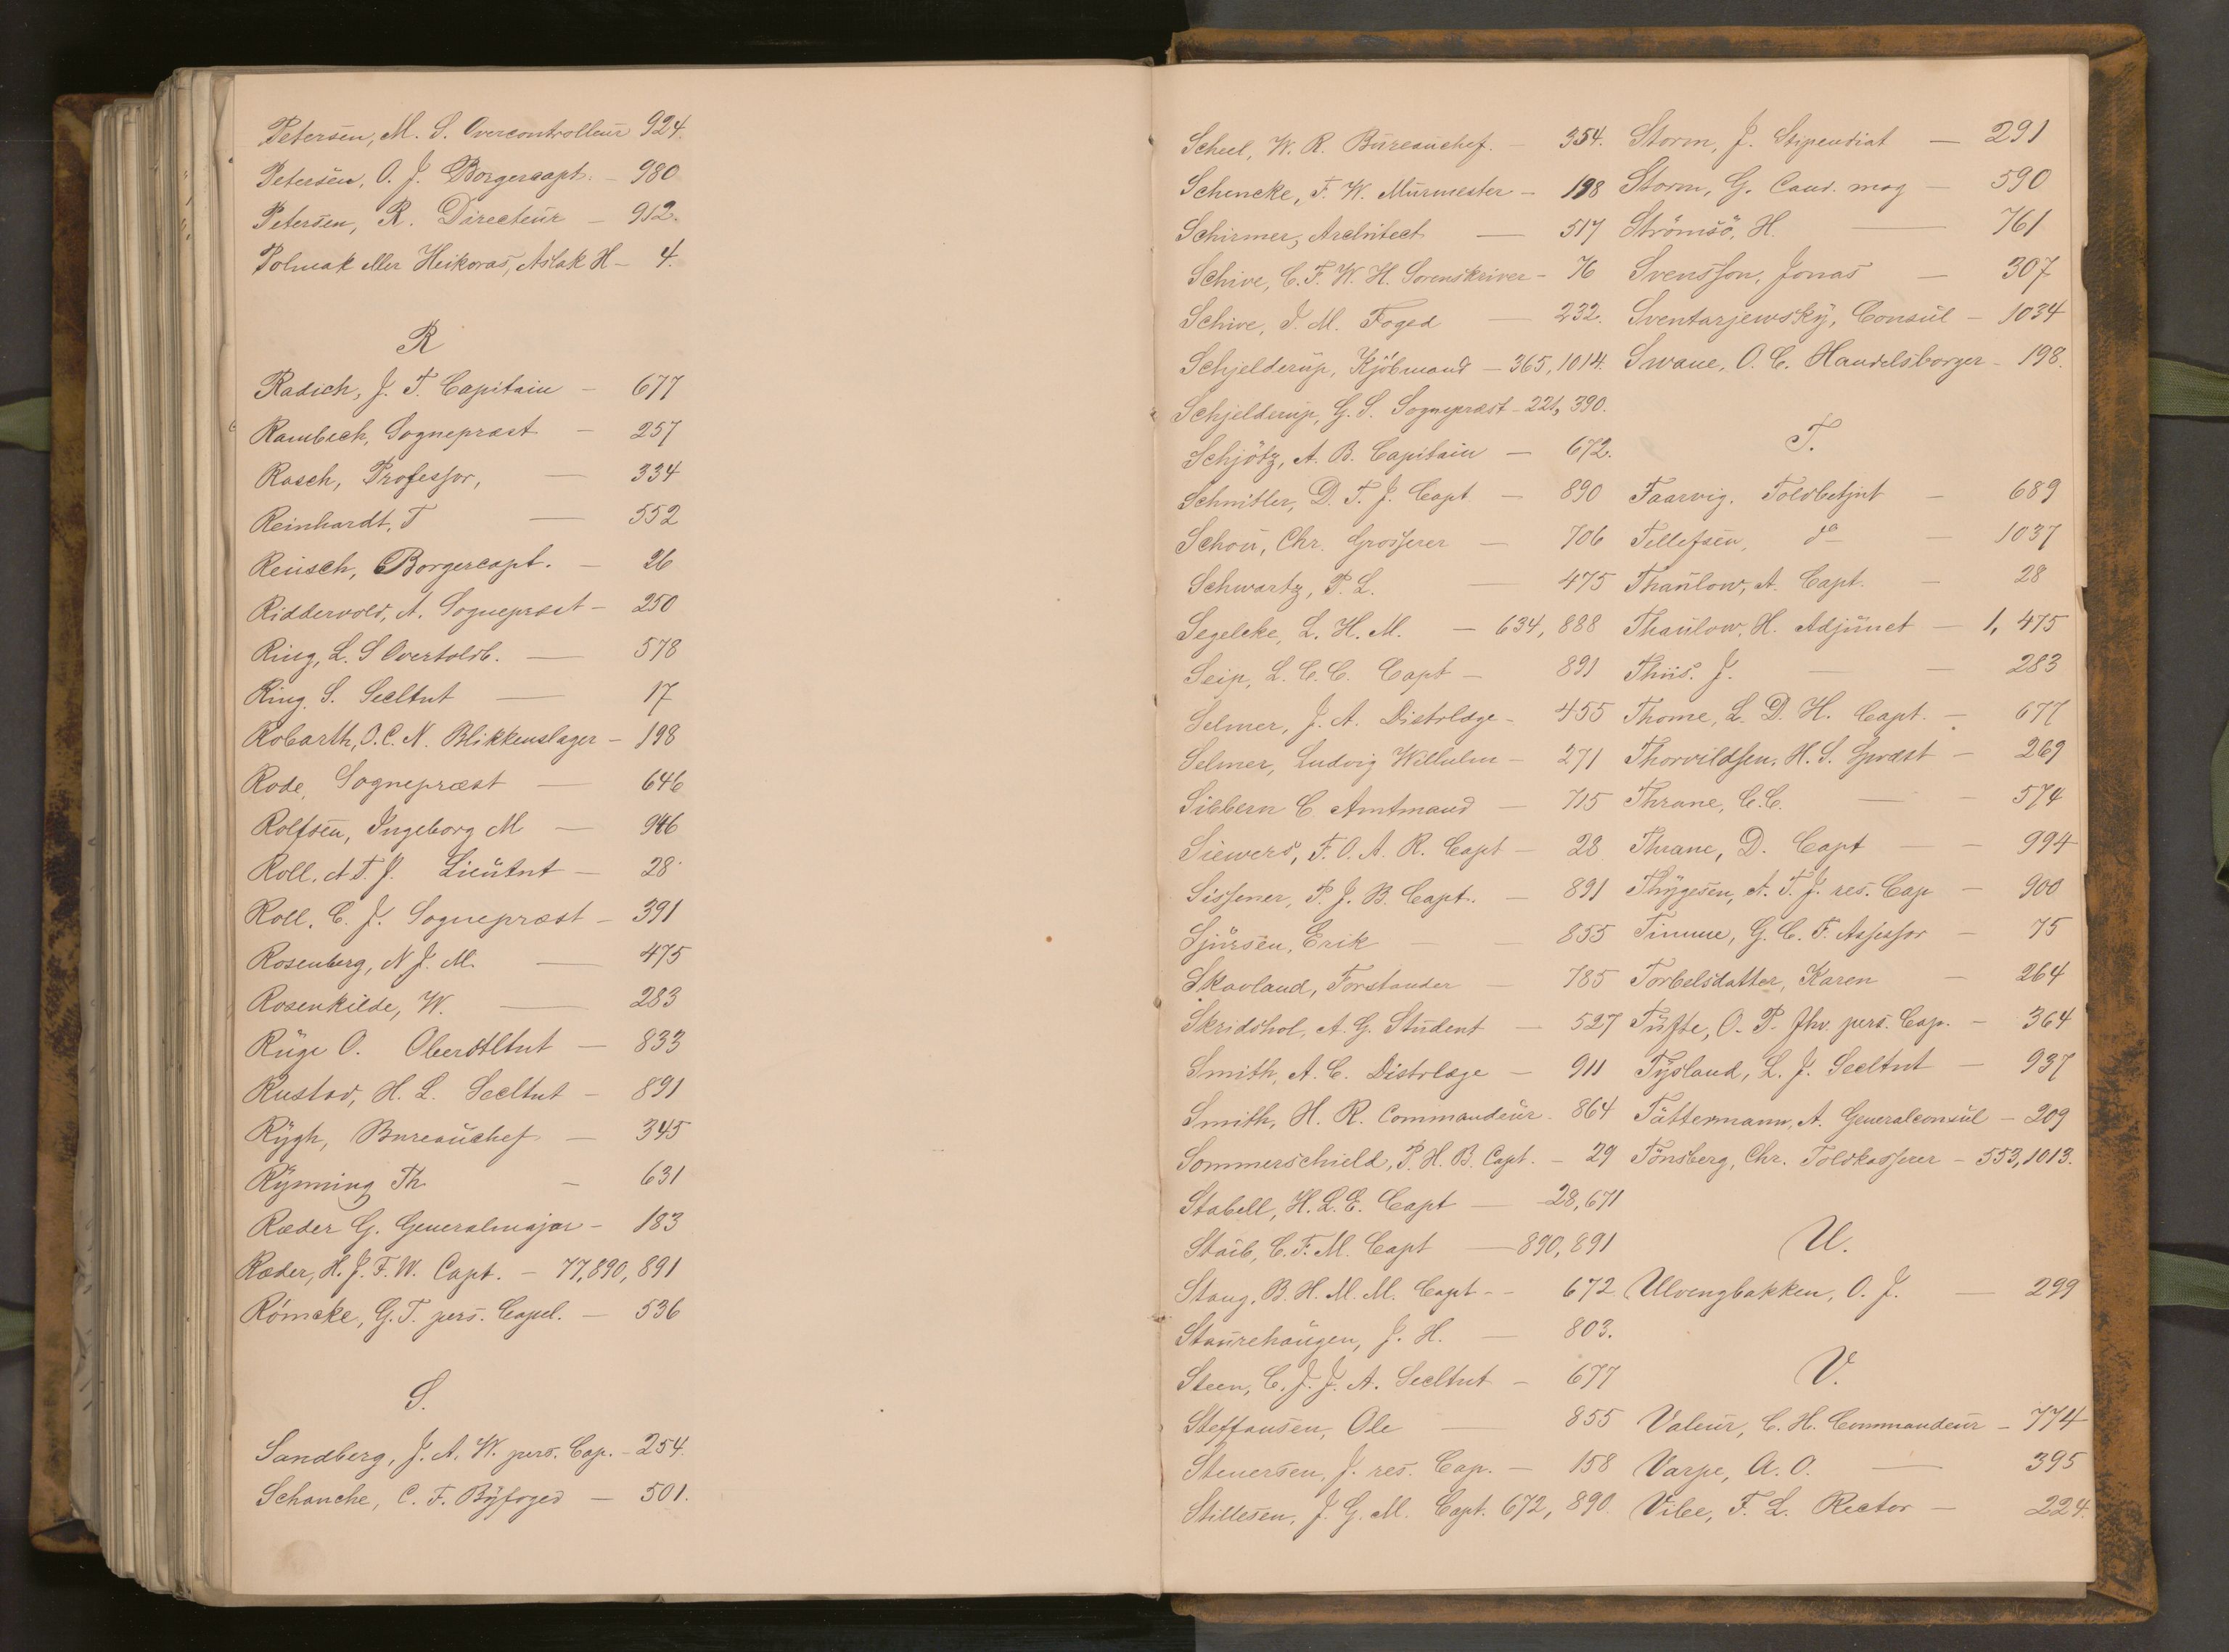 Petersen, M. S. Overcontrolleur 924.
Petersen, O. J. Borgercapt. - 980
Petersen, R. Directeur - 912.
Polmak eller Heikoras, Aslak H - 4.
R
Radich, J. T. Capitain - 677
Rambech, Sognepræst - 257
Rasch, Professor, - 334
Reinhardt, T - 552
Reusch, Borgercapt. - 26
Riddervold, A. Sognepræst - 250
Ring, L. S Overtoldb. - 578
Ring, S. Secltnt - 17
Robarth, O. C. N. Blikkenslager - 198
Rode, Sognepræst - 646
Rolfsen, Ingeborg M - 946
Roll, A T. J. Lieutnt - 28
Roll, C. J. Sognepræst - 391
Rosenberg, N J. M. - 475
Rosenkilde, W. - 283
Ruge O. Oberstltnt - 833
Rustad, H. L. Secltnt - 891
Rygh, Bureauchef - 345
Rynning Th - 631
Ræder G. Generalmajor - 183
Ræder, H. J. F. W. Capt. - 77, 890, 891
Römcke, G. T. pers. Capel. - 536
S.
Sandberg, J. A. W. pers. Cap. - 254.
Schanche, C. F. Byfoged - 501.
Scheel, W. R. Bureauchef. - 354.
Schencke, F. W. Murmester - 198
Schirmer, Architect - 517
Schive, C. F. W. H. Sorenskriver - 76
Schive, J. M. Foged - 232.
Schjelderup, Kjöbmand - 365, 1014.
Schjelderup, G. S. Sognepræst - 221, 390.
Schjötz, A. B. Capitain - 672.
Schnitler, D. T. J. Capt - 890
Schou, Chr. Grosserer - 706
Schwartz, P. L. - 475
Segelcke, L. H. M. - 634, 888
Seip, L. C. C. Capt - 891
Selmer, J. A. Distrlæge - 455
Selmer, Ludvig Willulm - 271
Sibbern C Amtmand - 715
Siewers, F. O. A. R. Capt - 28
Sissener, P. J. B. Capt. - 891
Sjursen, Erik - 855
Skavland, Forstander - 785
Skridshol, A. G. Student - 527
Smith, A. C. Distrlæge - 911
Smith, H. R. Commandeur - 864
Sommerschield, P. H. B. Capt. - 29
Stabell, H. L. E. Capt - 28, 671
Staib, C. F. M. Capt - 890, 891
Stang, B. H. M. M. Capt - - 672
Staurehaugen, J. H. - 803.
Steen, C. J. J. A. Secltnt - 677
Steffansen, Ole - 855
Stenersen, J. res. Cap. - 158
Stillesen, J. G. M. Capt. 672, 890.
Storm, J. Stipendiat - 291
Storm, G. Cand. mag - 590
Strömsö, H. - 761
Svensson, Jonas - 307
Sventarjewsky, Consul - 1034
Swane, O. C. Handelsborger - 198.
T.
Taarvig, Toldbetjnt - 689
Tellefsen, do - 1037
Thaulow, A. Capt. - 28
Thaulow, H. Adjunct - 1, 475
Thiis. J. - 283
Thome, L. D. H. Capt. - 677
Thorvildsen, H. S. Spræst - 269
Thrane, C. C. - 574
Thrane, D. Capt - 994
Thygesen, A. T. J. res. Cap - 900
Timme, G. C. F. Assessor - 75
Torbelsdatter, Karen - 264
Tufte, O. P. Jhv. pers. Cap. - 364
Tysland, L. J. Secltnt - 937
Tättermann, A. Generalconsul - 209
Tönsberg, Chr. Toldkasserer - 553, 1013.
U.
Ulvengbakken, O. J. - 299
V.
Valeur, C. H. Commandeur - 774
Varpe, A. O. - 395
Vibe, F. L. Rector - 224.